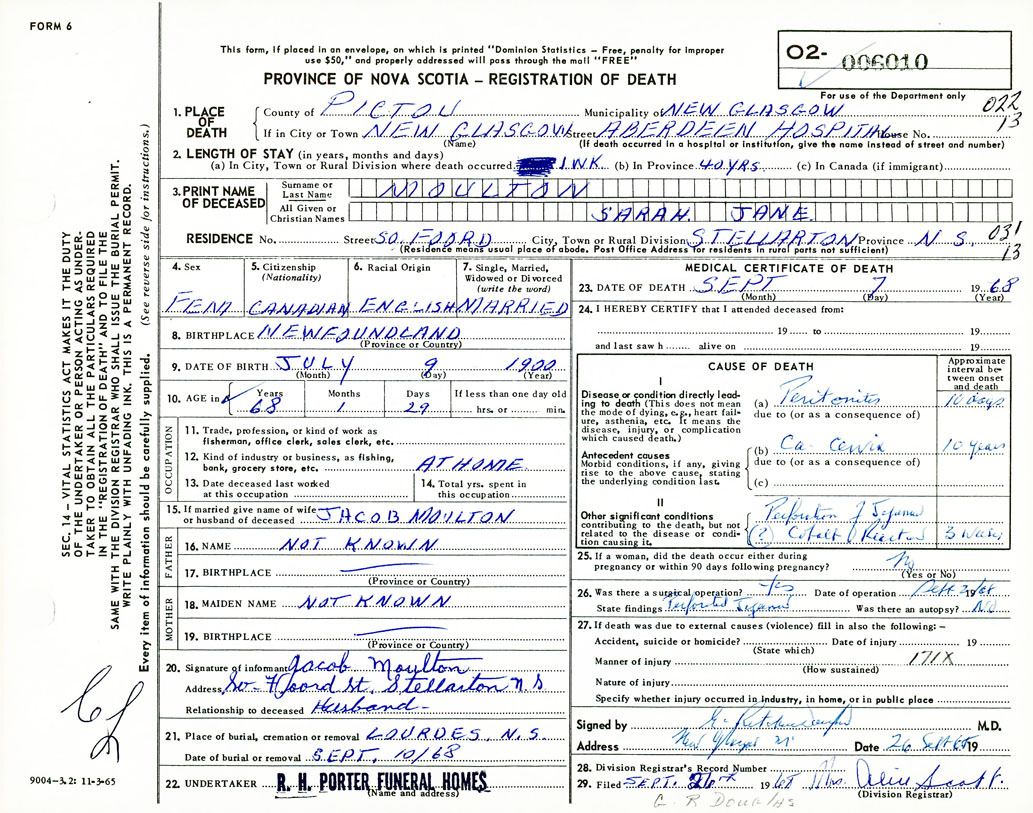 FORM 6
This form, if placed in an envelope, on which is printed "Dominion Statistics – Free, penalty for improper
use $50," and properly addressed will pass through the mail "FREE"
PROVINCE OF NOVA SCOTIA – REGISTRATION OF DEATH
O2- 006010
For use of the Department only
022
13
1. PLACE OF DEATH
County of PICTOU Municipality of NEW GLASGOW
If in City or Town NEW GLASGOW Street ABERDEEN HOSPITAL House No.
(Name) (If death occurred in a hospital or institution, give the name instead of street and number)
2. LENGTH OF STAY (in years, months and days)
(a) In City, Town or Rural Division where death occurred 1 WK. (b) In Province 40 YRS. (c) In Canada (if immigrant)
3. PRINT NAME OF DECEASED
Surname or Last Name MOULTON
All Given or Christian Names SARAH JANE
RESIDENCE No. Street SO. FOORD City, Town or Rural Division STELLARTON Province N S.
(Residence means usual place of abode. Post Office Address for residents in rural parts not sufficient)
031
13
4. Sex FEM
5. Citizenship (Nationality) CANADIAN
6. Racial Origin ENGLISH
7. Single, Married, Widowed or Divorced (write the word) MARRIED
8. BIRTHPLACE NEWFOUNDLAND
(Province or Country)
9. DATE OF BIRTH JULY 9 1900
(Month) (Day) (Year)
10. AGE in Years 68 Months 1 Days 29 If less than one day old hrs. or min.
OCCUPATION
11. Trade, profession, or kind of work as
fisherman, office clerk, sales clerk, etc.
12. Kind of industry or business, as fishing,
bank, grocery store, etc. AT HOME
13. Date deceased last worked
at this occupation
14. Total yrs. spent in
this occupation
15. If married give name of wife
or husband of deceased JACOB MOULTON
FATHER
16. NAME NOT KNOWN
17. BIRTHPLACE
(Province or Country)
MOTHER
18. MAIDEN NAME NOT KNOWN
19. BIRTHPLACE
(Province or Country)
20. Signature of informant Jacob Moulton
Address So- Foord St. Stellarton N S
Relationship to deceased Husband-
21. Place of burial, cremation or removal LOURDES, N.S.
Date of burial or removal SEPT. 10/68
22. UNDERTAKER R. H. PORTER FUNERAL HOMES
(Name and address)
MEDICAL CERTIFICATE OF DEATH
23. DATE OF DEATH SEPT 7 1968
(Month) (Day) (Year)
24. I HEREBY CERTIFY that I attended deceased from:
19 to 19
and last saw h alive on 19
CAUSE OF DEATH
Approximate interval between onset and death
I
Disease or condition directly leading to death (This does not mean
the mode of dying, e.g., heart failure, asthenia, etc. It means the
disease, injury, or complication
which caused death.)
(a) Peritonites 10 days
due to (or as a consequence of)
Antecedent causes
Morbid conditions, if any, giving
rise to the above cause, stating
the underlying condition last.
(b) Ca- Cervix 10 years
due to (or as a consequence of)
(c)
II
Other significant conditions
contributing to the death, but not
related to the disease or condition causing it.
Perforation of Jejunum
(?) Cobalt Reaction 3 weeks
25. If a woman, did the death occur either during
pregnancy or within 90 days following pregnancy? No
(Yes or No)
26. Was there a surgical operation? Yes Date of operation Sept 2 1968
State findings Perforated Jejunum Was there an autopsy? NO
27. If death was due to external causes (violence) fill in also the following: –
Accident, suicide or homicide? Date of injury 19
(State which)
Manner of injury 171X
(How sustained)
Nature of injury
Specify whether injury occurred in industry, in home, or in public place
Signed by M.D.
Address New Glasgow Date 26 Sept 68 19
28. Division Registrar's Record Number
29. Filed SEPT. 26th 1968 Mrs. Alice Scott
(Division Registrar)
G R DOUGLAS
SEC. 14 – VITAL STATISTICS ACT MAKES IT THE DUTY
OF THE UNDERTAKER OR PERSON ACTING AS UNDER-
TAKER TO OBTAIN ALL THE PARTICULARS REQUIRED
IN THE "REGISTRATION OF DEATH" AND TO FILE THE
SAME WITH THE DIVISION REGISTRAR WHO SHALL ISSUE THE BURIAL PERMIT.
WRITE PLAINLY WITH UNFADING INK. THIS IS A PERMANENT RECORD.
Every item of information should be carefully supplied. (See reverse side for instructions.)
9004-3.2: 11-3-65